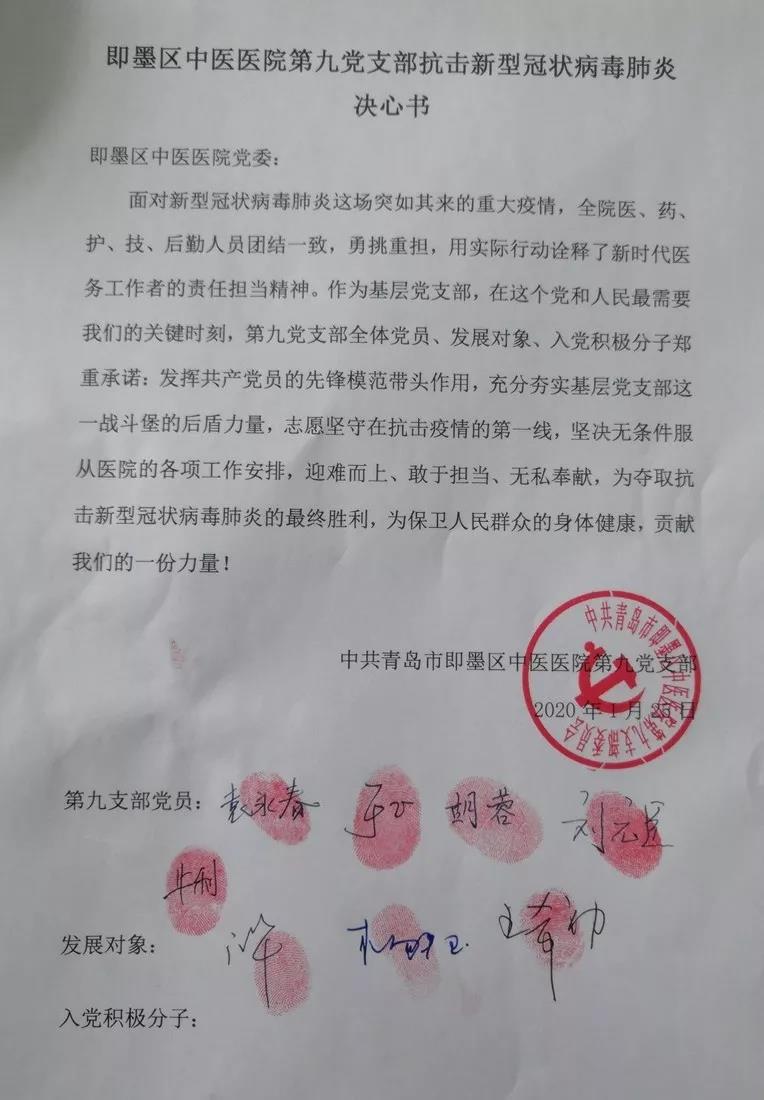 即墨区中医医院第九党支部抗击新型冠状病毒肺炎
决心书
即墨区中医医院党委：
面对新型冠状病毒肺炎这场突如其来的重大疫情，全院医、药、
护、技、后勤人员团结一致，勇挑重担，用实际行动诠释了新时代医
务工作者的责任担当精神。作为基层党支部，在这个党和人民最需要
我们的关键时刻，第九党支部全体党员、发展对象、入党积极分子郑
重承诺：发挥共产党员的先锋模范带头作用，充分夯实基层党支部这
一战斗堡的后盾力量，志愿坚守在抗击疫情的第一线，坚决无条件服
从医院的各项工作安排，迎难而上、敢于担当、无私奉献，为夺取抗
击新型冠状病毒肺炎的最终胜利，为保卫人民群众的身体健康，贡献
我们的一份力量！
中共青岛市即墨区中医医院第九党支部
2020 年 1 月 25 日
中共青岛市即墨区中医医院第九支部委员会
第九支部党员：袁永春 胡蓉
牛刚
发展对象：
入党积极分子：